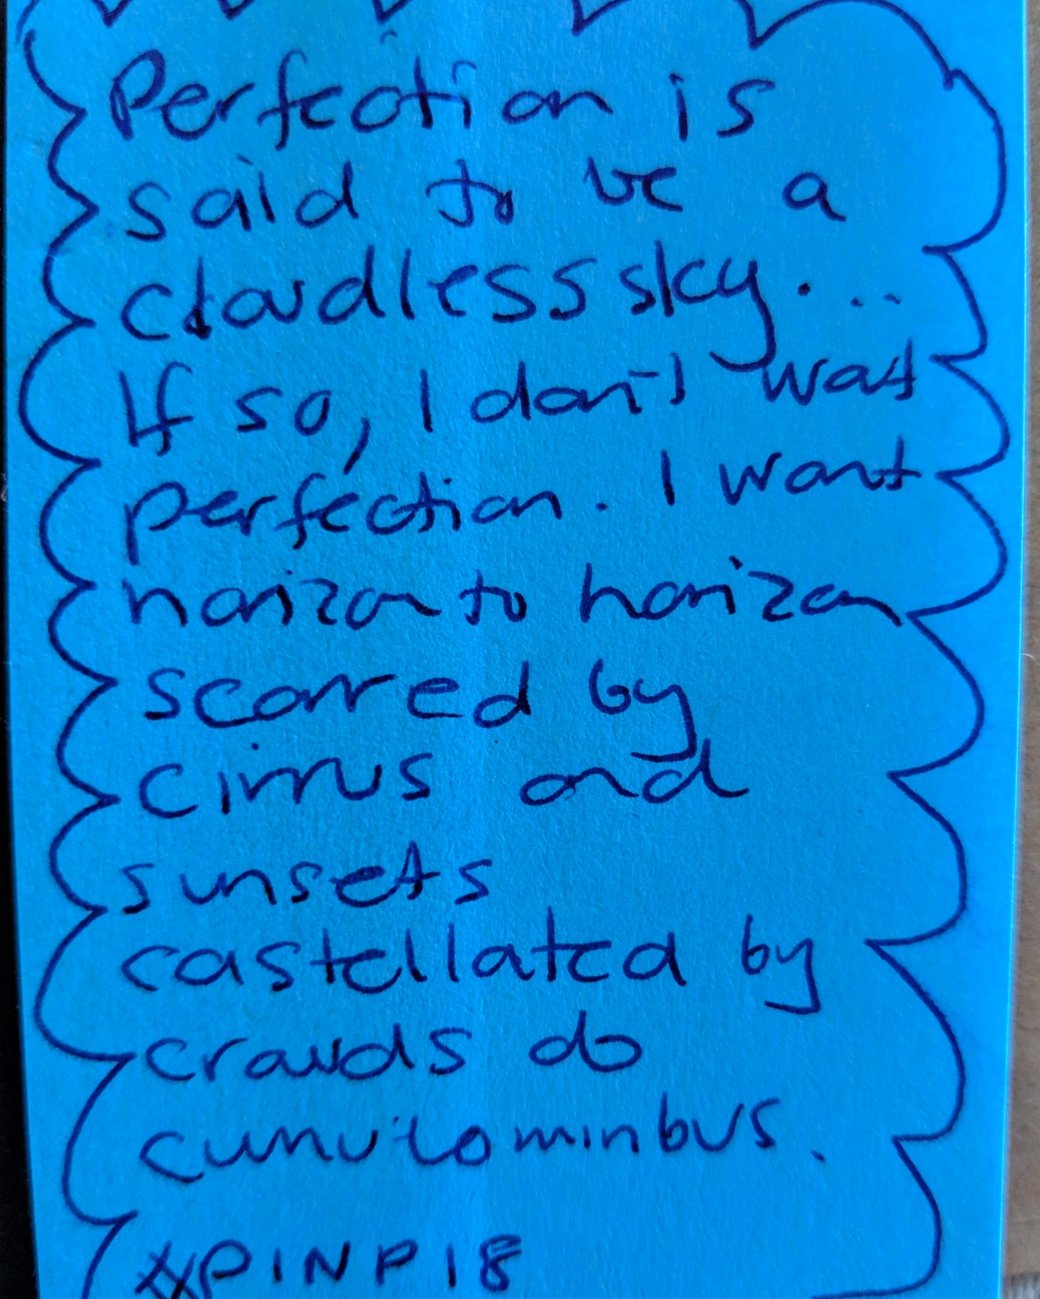 Perfection is
said to be a
cloudless sky...
If so, I don't want
perfection. I want
horizon to horizon
scarred by
cirrus and
sunsets
castellated by
crowds do
cumulominbus.
#PINP18